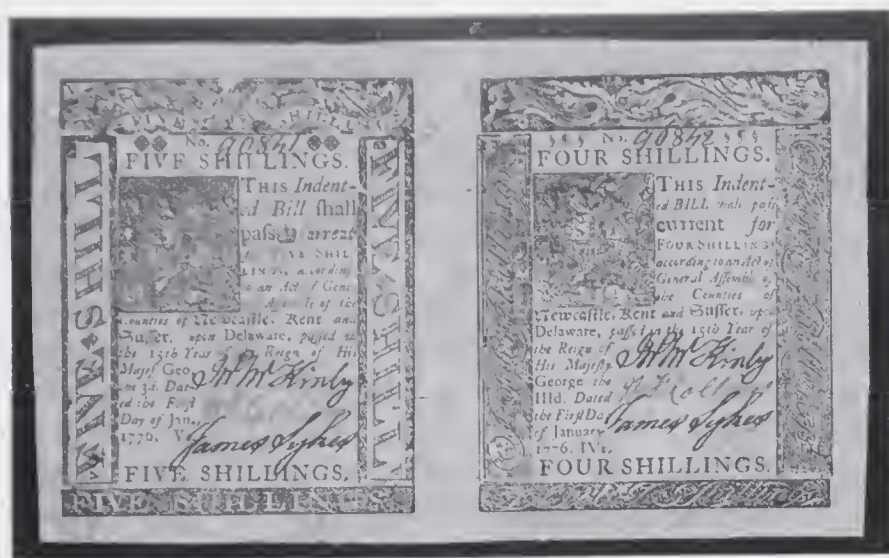 FIVE SHILLING
No. 90841
FIVE SHILLINGS.
FIVE SHILL
FIVE SHILL
THIS Indent-
ed Bill shall
pass current
FIVE SHIL-
LINGS, according
to an Act of Gene
Assembly of the
Counties of Newcastle, Kent and
Sussex, upon Delaware, passed in
the 15th Year of Reign of His
Majesty Geo
3d. Dat-
ed the First
Day of Jan.
1776. V
Jno McKinly
James Sykes
FIVE SHILLINGS.
FIVE SHILLINGS
No. 90842
FOUR SHILLINGS.
THIS Indent-
ed BILL shall pass
current for
FOUR SHILLINGS
according to an Act of
General Assembly of
the Counties of
Newcastle, Kent and Sussex, upon
Delaware, passed in the 15th Year of
the Reign of
His Majesty
George the
IIId. Dated
the First Day
of January
1776. IVs.
Jno McKinly
James Sykes
FOUR SHILLINGS.